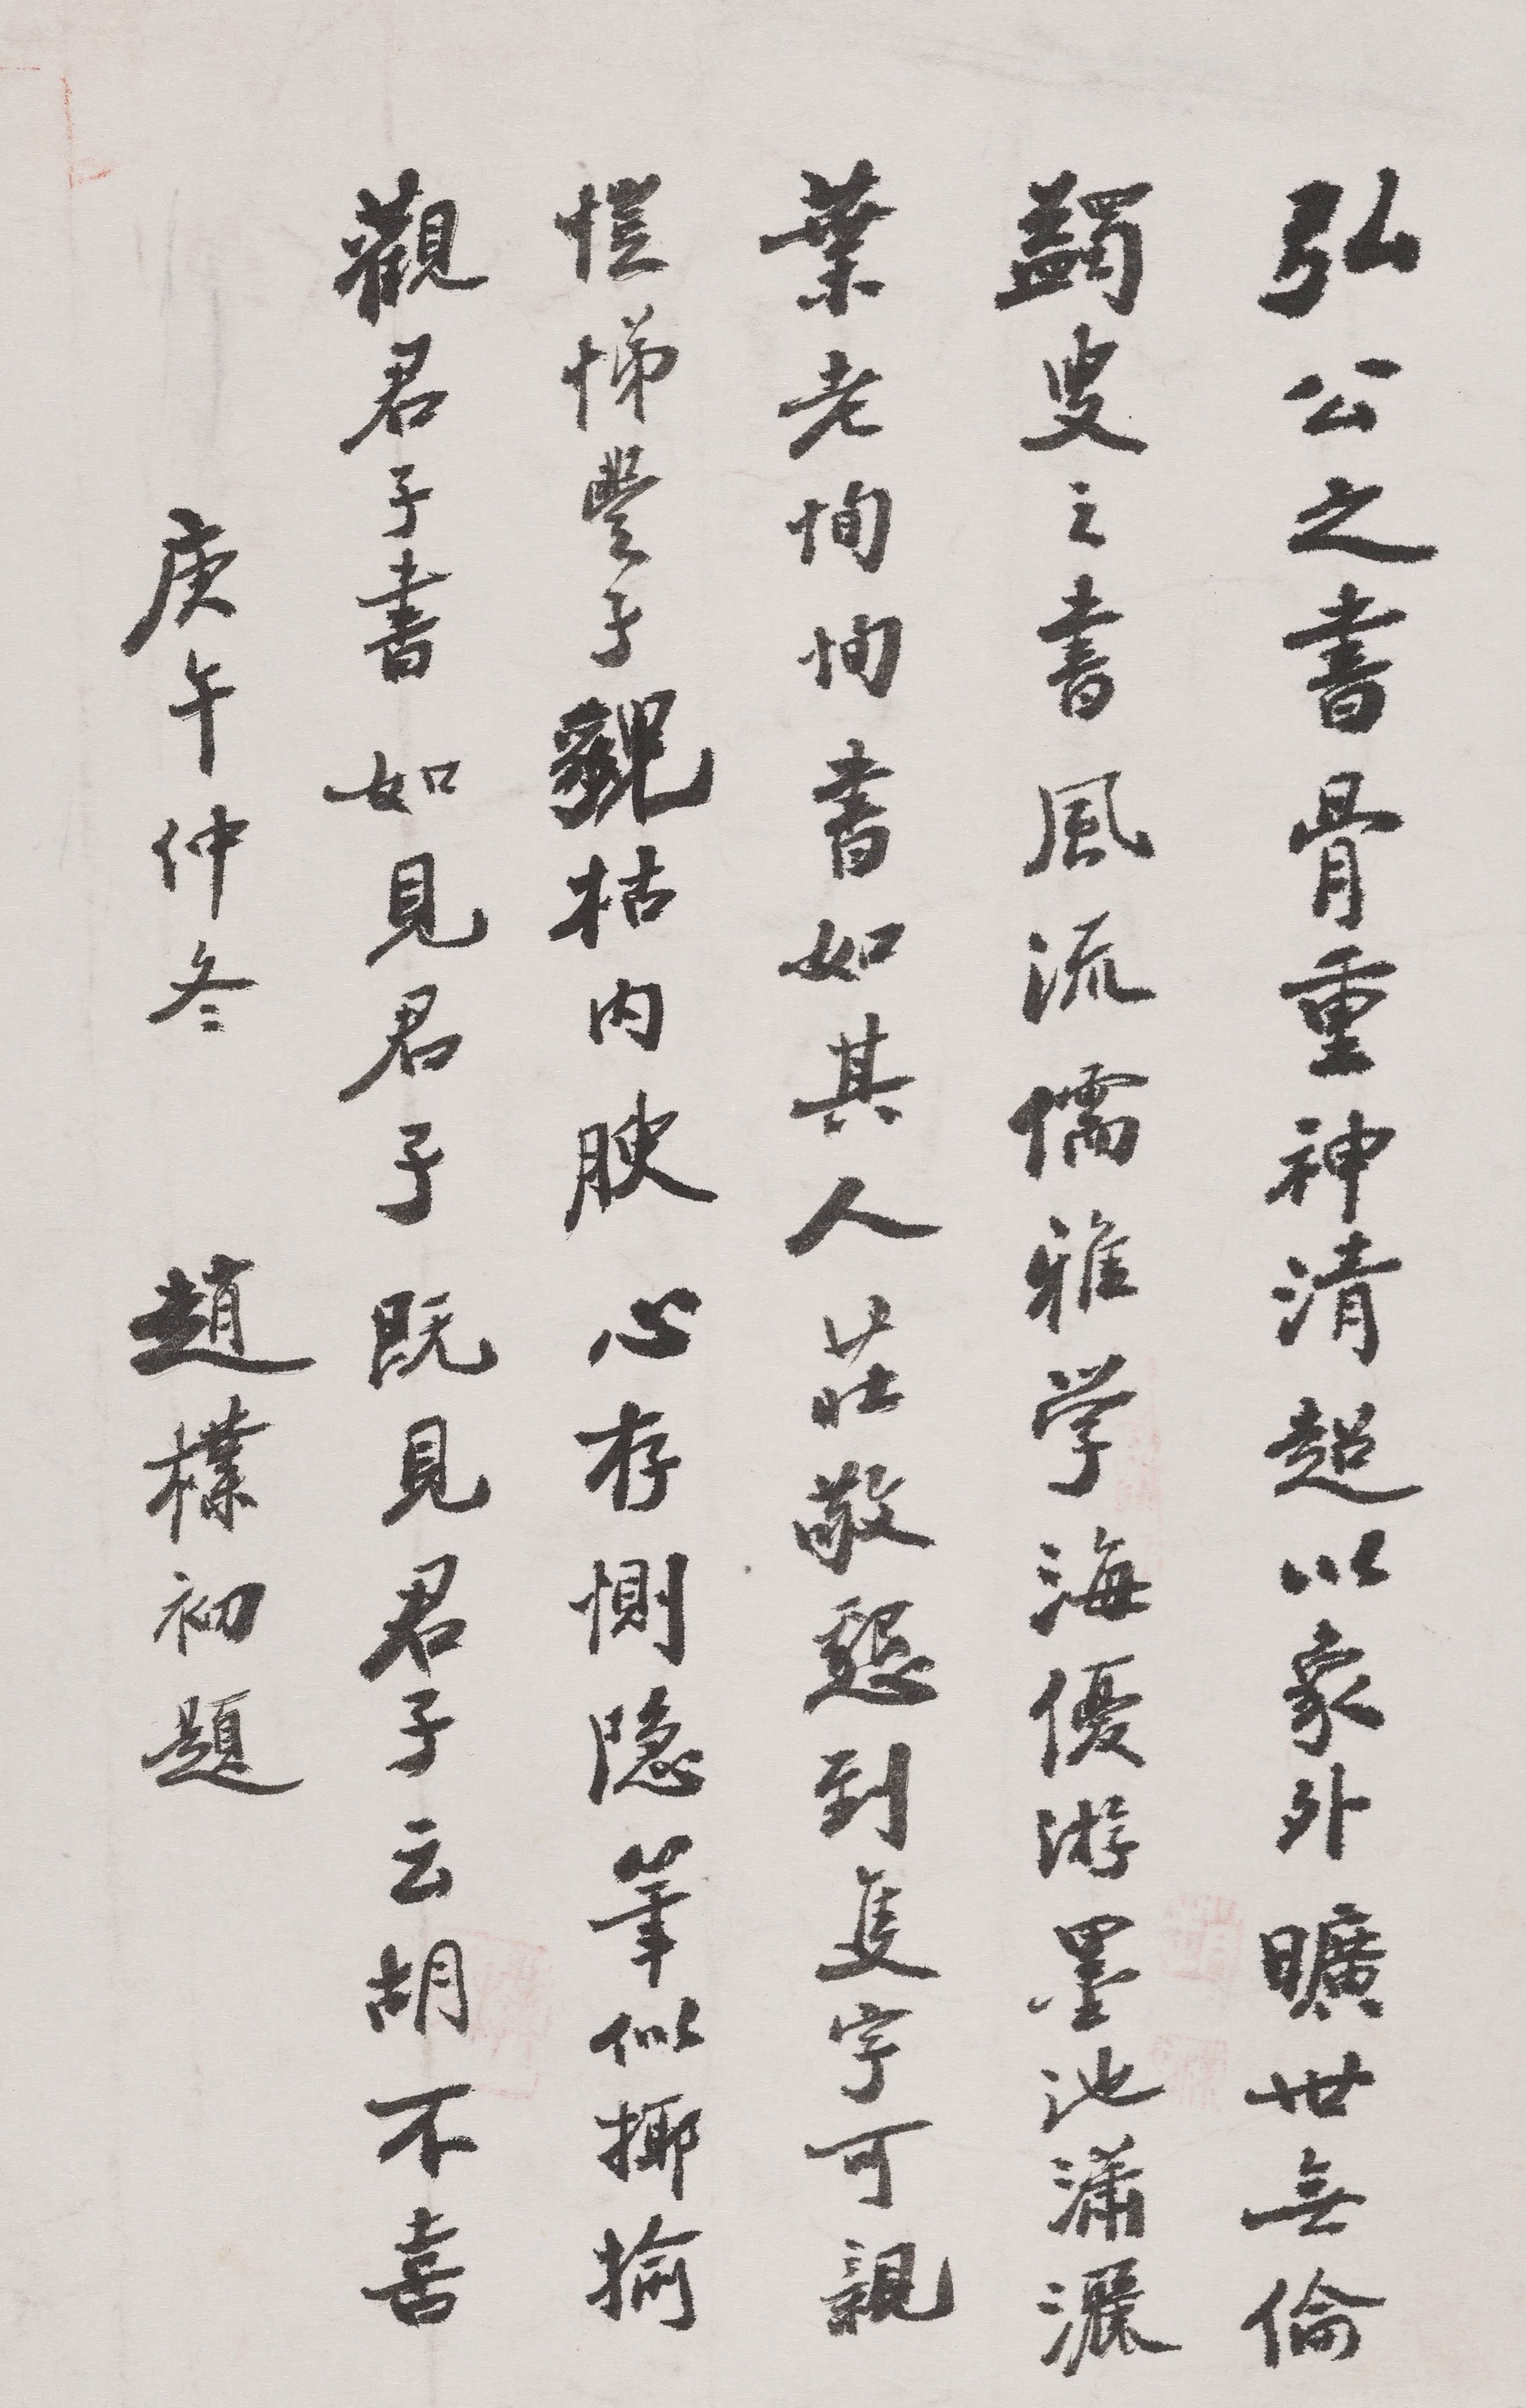 弘公之書骨重神清超以象外曠世無倫
蠲叟之書風流儒雅学海優游墨池瀟灑
葉老恂恂書如其人莊敬懇到隻字可親
愷悌豐子貌枯内腴心存惻隐筆似揶揄
觀君子書如見君子既見君子云胡不喜
庚午仲冬 趙樸初題